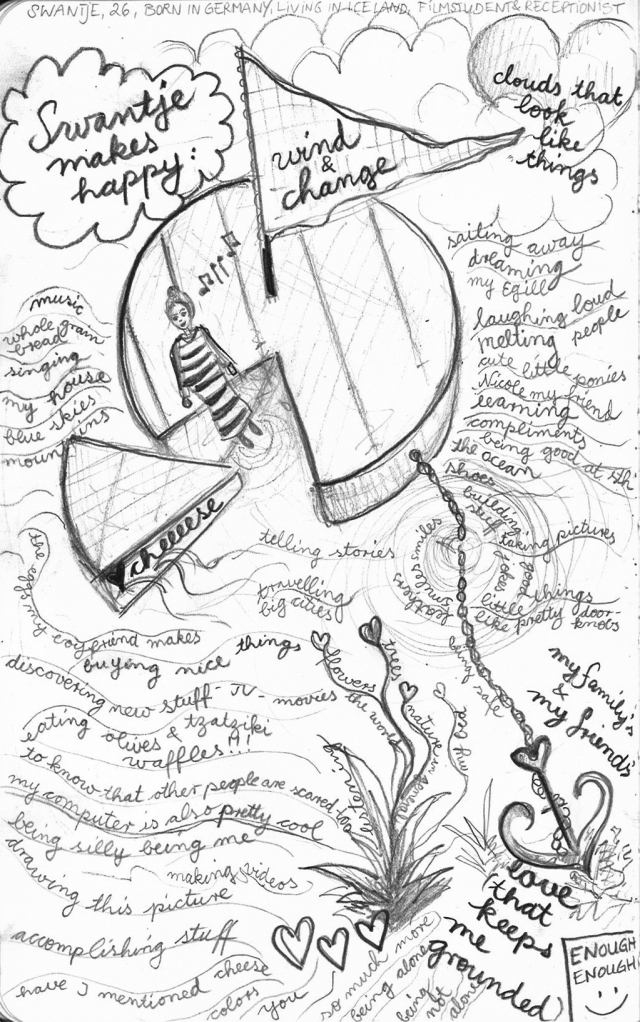 SWANTJE, 26, BORN IN GERMANY, LIVING IN ICELAND, FILMSTUDENT & RECEPTIONIST
Swantje
makes
happy:
wind
&
change
clouds that
look
like
things
music
whole grain
bread
singing
my house
blue skies
mountains
sailing away
dreaming
my Egill
laughing loud
melting people
cute little ponies
Nicole my friend
learning
compliments
being good at sth
the ocean
shoes
building
stuff taking pictures
good
little things
like pretty door-
knobs
smiles
being safe
cheeeese
telling stories
travelling
big cities
the eggs my boyfriend makes
buying nice things
discovering new stuff - TV - movies
eating olives & tzatziki
waffles!!!
to know that other people are scared, too
my computer is also pretty cool
being silly being me
making videos
drawing this picture
accomplishing stuff
have I mentioned cheese
colors
you
flowers
trees
the world
nature
my dad
my family's
&
my friends'
love
(that
keeps
me
grounded)
so much more
being alone
being
not
alone
ENOUGH
ENOUGH